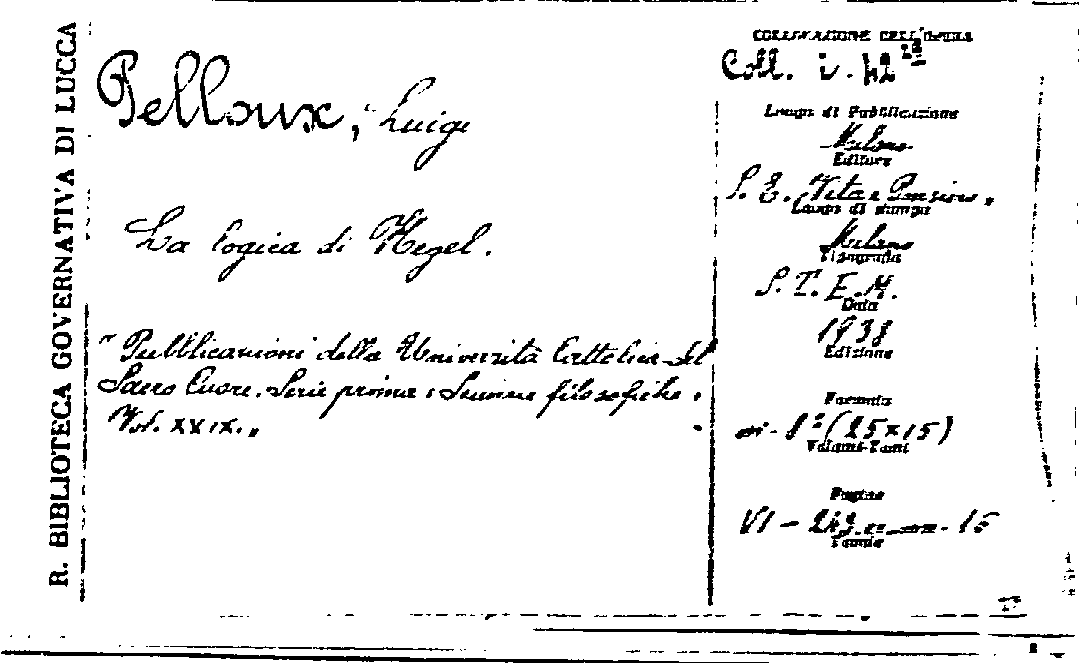 R. BIBLIOTECA GOVERNATIVA DI LUCCA
Pelloux, Luigi
La logica di Hegel.
"Pubblicazioni della Università Cattolica del
Sacro Cuore. Serie prima: Scienze filosofiche.
Vol. XXIX."
COLLOCAZIONE DELL'OPERA
Coll. i. 42
Luogo di Pubblicazione
Milano
Editore
S. E. Vita e Pensiero.
Luogo di stampa
Milano
Tipografia
S. T. E. M.
Data
1938
Edizione
Formato
in-8° (25×15)
Volumi-Tomi
Pagine
VI - 243
Tavole